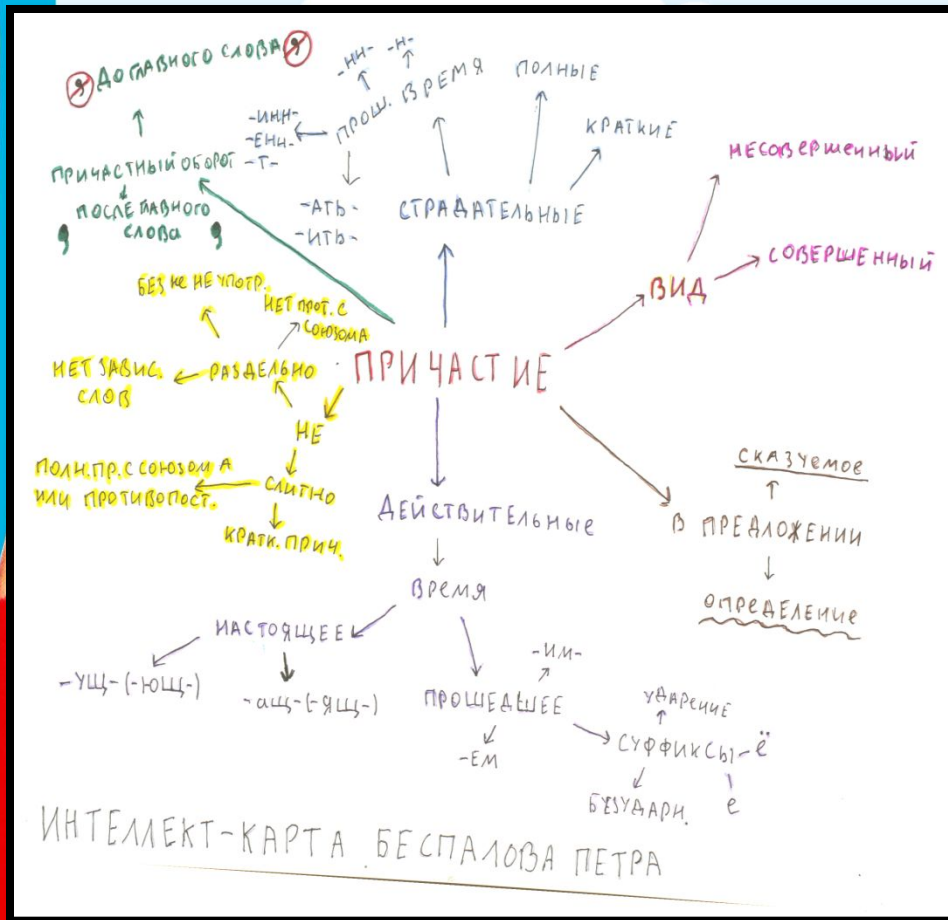 ДО ГЛАВНОГО СЛОВА
ПРИЧАСТНЫЙ ОБОРОТ
ПОСЛЕ ГЛАВНОГО
СЛОВА
-НН- -Н-
ПРОШ. ВРЕМЯ
-ИНН-
-ЕНН-
-Т-
-АТЬ-
-ИТЬ-
ПОЛНЫЕ
КРАТКИЕ
СТРАДАТЕЛЬНЫЕ
НЕСОВЕРШЕННЫЙ
СОВЕРШЕННЫЙ
ВИД
БЕЗ НЕ НЕ УПОТР.
НЕТ ПРОТ. С
СОЮЗОМ А
НЕТ ЗАВИС.
СЛОВ
РАЗДЕЛЬНО
ПРИЧАСТИЕ
НЕ
ПОЛН. ПР. С СОЮЗОМ А
ИЛИ ПРОТИВОПОСТ.
СЛИТНО
КРАТК. ПРИЧ.
ДЕЙСТВИТЕЛЬНЫЕ
СКАЗУЕМОЕ
В ПРЕДЛОЖЕНИИ
ОПРЕДЕЛЕНИЕ
ВРЕМЯ
НАСТОЯЩЕЕ
-УЩ-(-ЮЩ-)
-АЩ-(-ЯЩ-)
ПРОШЕДШЕЕ
-ИМ-
-ЕМ
УДАРЕНИЕ
СУФФИКСЫ-Ё
БУЗУДАРН.
Е
ИНТЕЛЛЕКТ-КАРТА БЕСПАЛОВА ПЕТРА